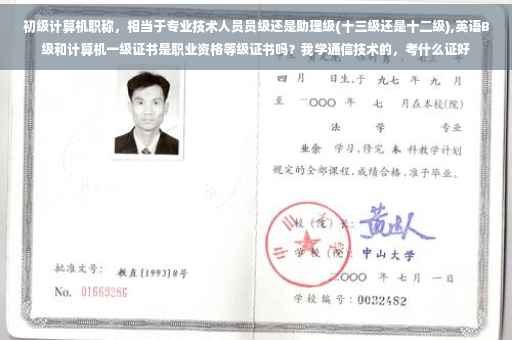 初级计算机职称，相当于专业技术人员员级还是助理级(十三级还是十二级),英语B
级和计算机一级证书是职业资格等级证书吗？我学通信技术的，考什么证好
四 月 日生,于 九七 年 九 月
至 二〇〇〇 年 七 月在本校(院)
法 学 专业
业余 学习,修完 本 科教学计划
规定的全部课程,成绩合格,准予毕业。
校(院)长:
学校(院): 中山大学
批准文号: 教直[1993]8号
二〇〇〇 年 七 月 一 日
No. 01669286
学校编号: 0032482